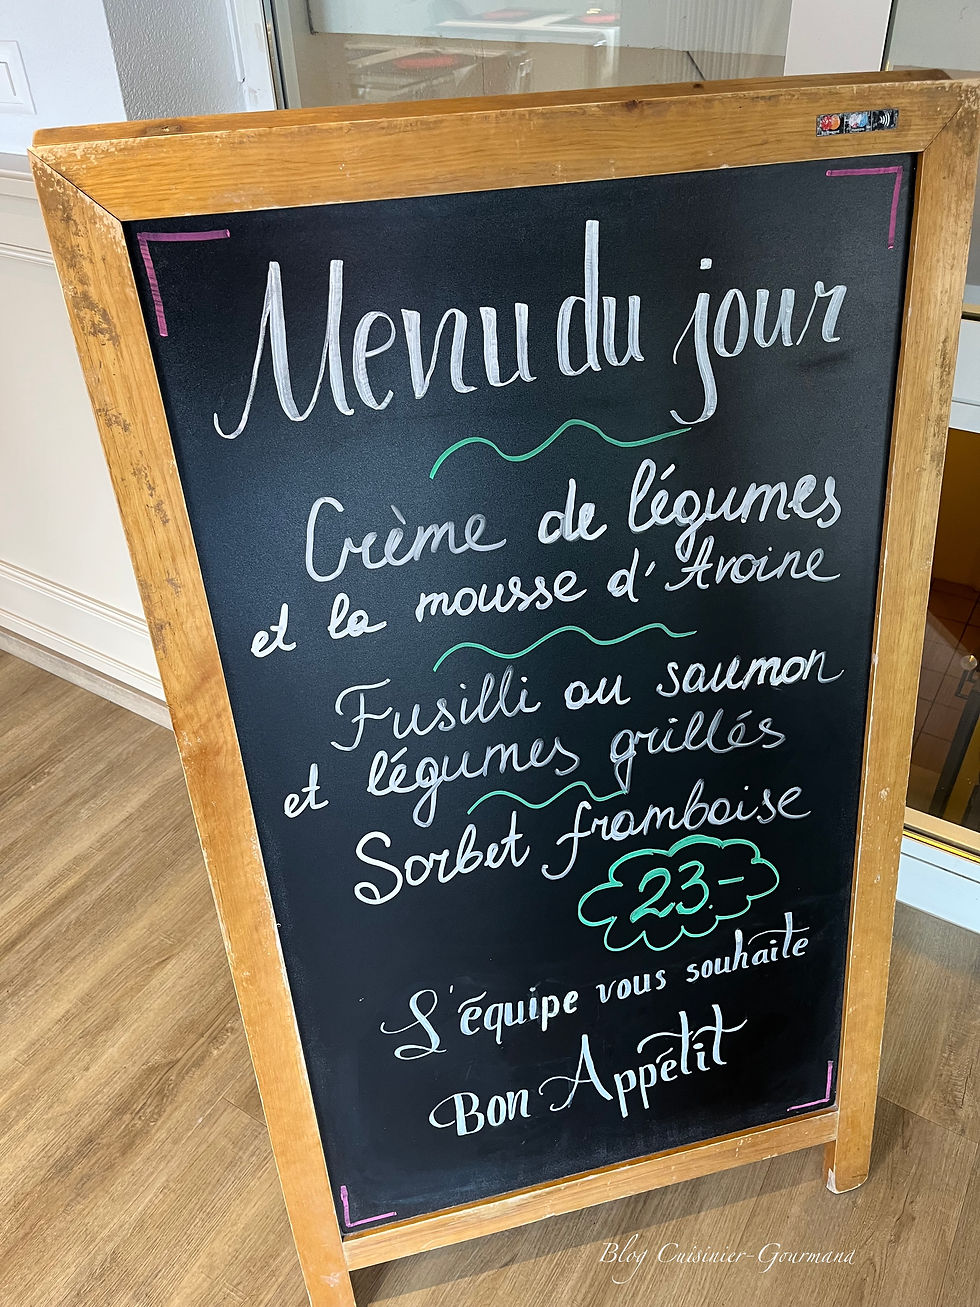 Menu du jour
Crème de légumes
et la mousse d'Avoine
Fusilli au saumon
et légumes grillés
Sorbet framboise
23.-
L'équipe vous souhaite
Bon Appétit
Blog Cuisinier-Gourmand